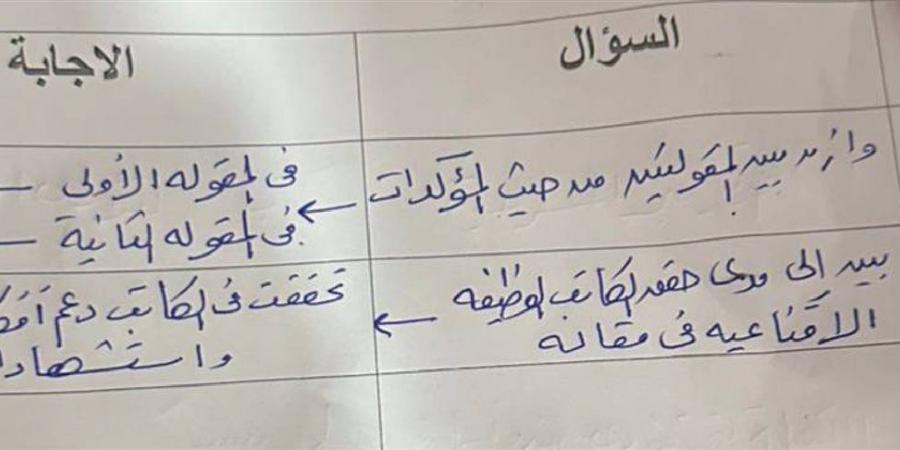 السؤال
الاجابة
وازن بين المقولتين من حيث المؤكدات
في المقوله الأولى
في المقوله الثانية
بين إلى مدى حقق الكاتب الوظيفه
الاقناعيه في مقاله
تحققت في الكاتب دعم أفك
واستشهاد